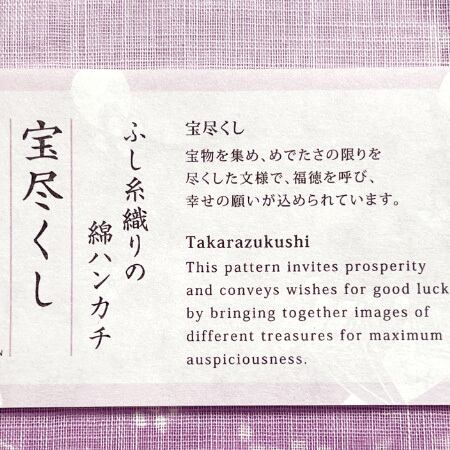 宝尽くし
ふし糸織りの
綿ハンカチ
宝尽くし
宝物を集め、めでたさの限りを
尽くした文様で、福徳を呼び、
幸せの願いが込められています。
Takarazukushi
This pattern invites prosperity
and conveys wishes for good luck
by bringing together images of
different treasures for maximum
auspiciousness.